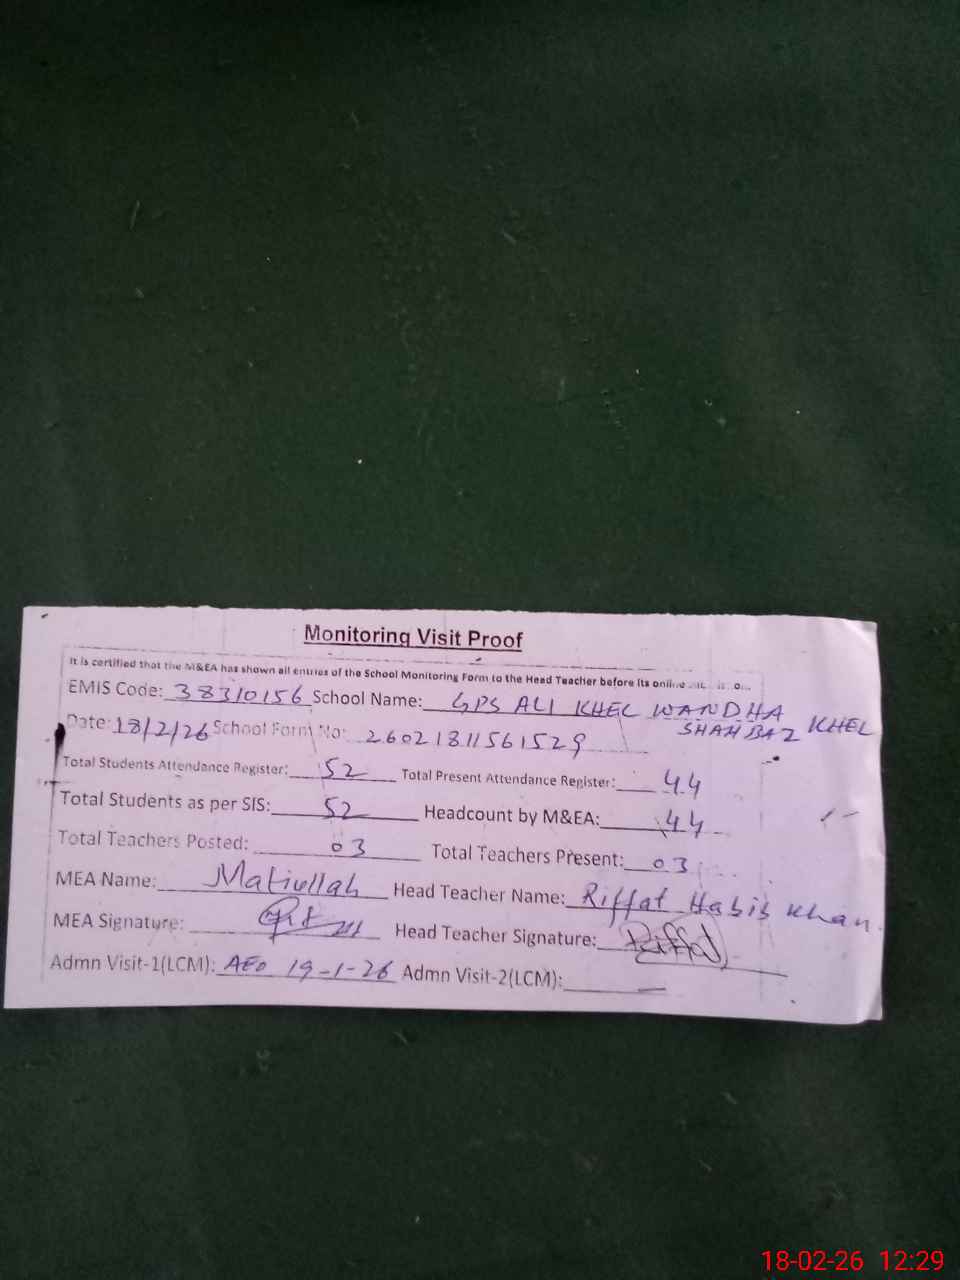 Monitoring Visit Proof
It is certified that the M&EA has shown all entries of the School Monitoring Form to the Head Teacher before its online
EMIS Code: 38310156 School Name: GPS ALI KHEL WANDHA
SHAHBAZ KHEL
Date: 18/2/26 School Form No: 2602181156 1529
Total Students Attendance Register: 52 Total Present Attendance Register: 44
Total Students as per SIS: 52 Headcount by M&EA: 44
Total Teachers Posted: 03 Total Teachers Present: 03
MEA Name: Matiullah Head Teacher Name: Riffat Habib Khan
MEA Signature: Head Teacher Signature: Riffat
Admn Visit-1(LCM): AEO 19-1-26 Admn Visit-2(LCM): —
18-02-26 12:29